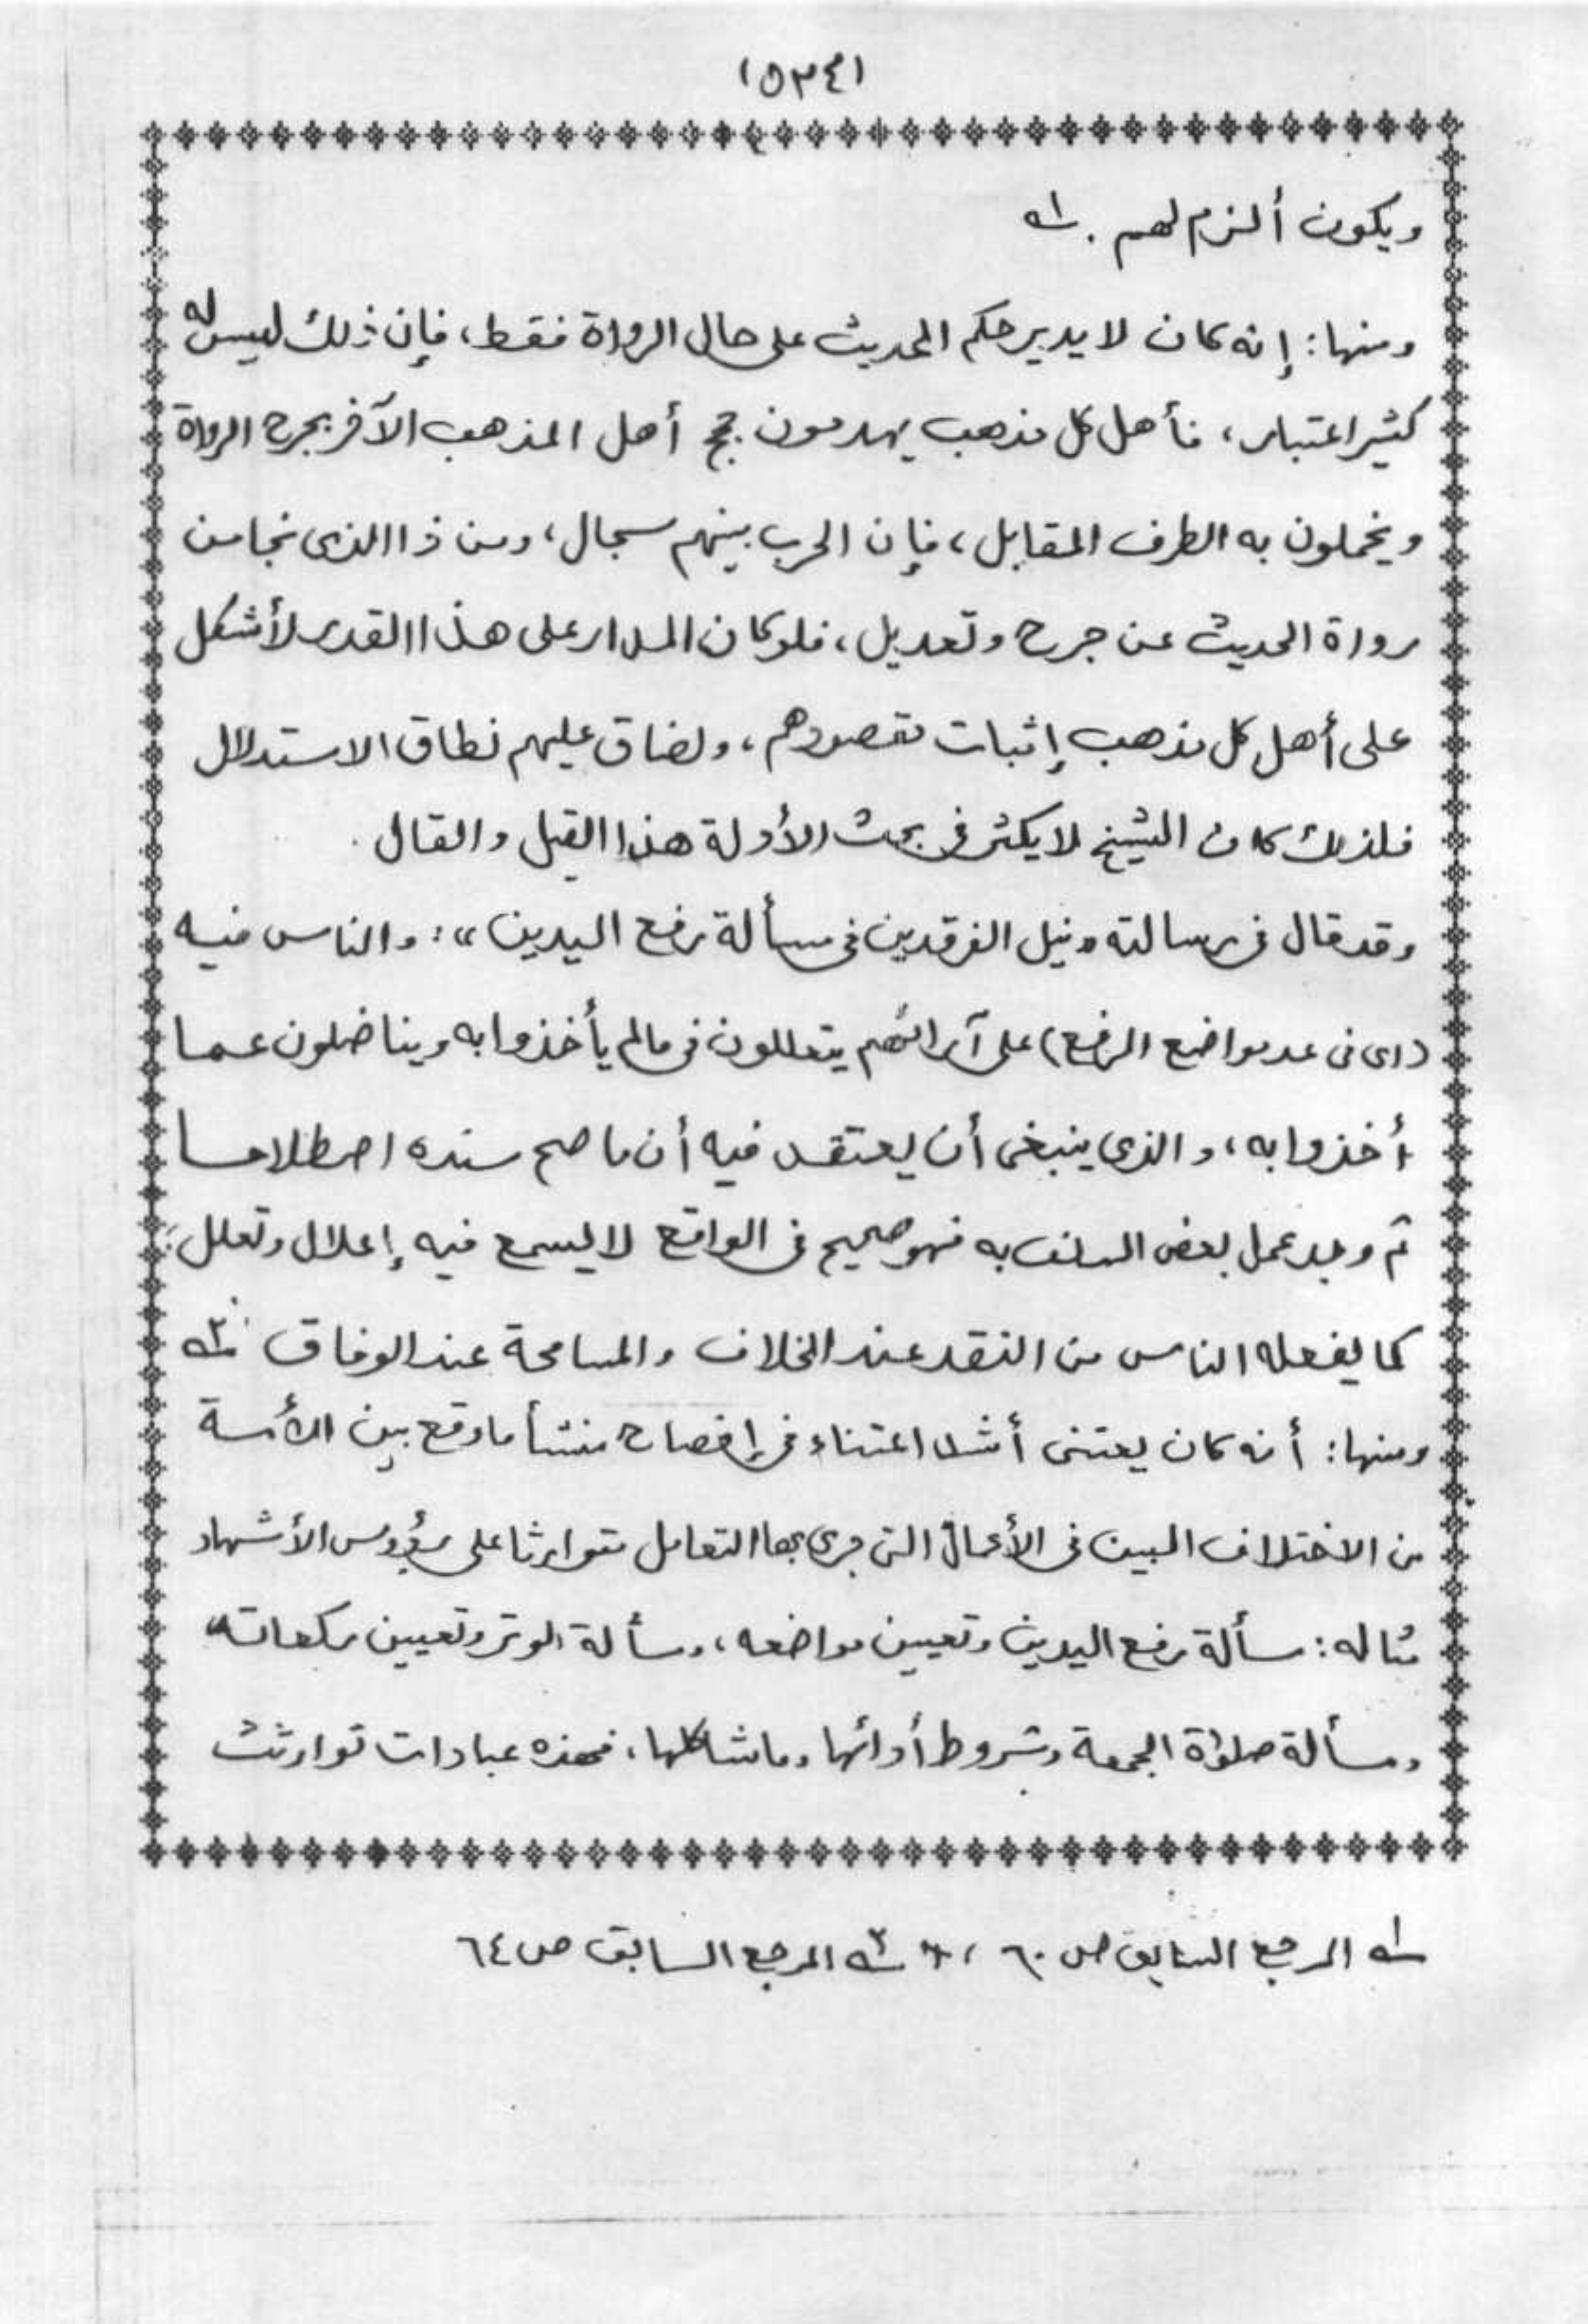 (٥٣٤)
ويكون ألزم لهم . ١ه
ومنها: إنه كان لا يدير حكم الحديث على حال الرواة فقط، فإن ذلك ليس له
كثير اعتبار، فأهل كل مذهب يهدمون حجج أهل المذهب الآخر بجرح الرواة
ويخملون به الطرف المقابل، فإن الحرب بينهم سجال، ومن ذا الذى نجا من
رواة الحديث عن جرح وتعديل، فلو كان المدار على هذا القدر لأشكل
على أهل كل مذهب إثبات مقصودهم، ولضاق عليهم نطاق الاستدلال
فلذلك كان الشيخ لا يكثر فى بحث الأدلة هذا القيل والقال .
وقد قال فى رسالته «نيل الفرقدين فى مسألة رفع اليدين»: والناس فيه
(اى فى عد مواضع الرفع) على آرائهم يتعللون فى مالم يأخذوا به ويناضلون عما
أخذوا به، والذى ينبغى أن يعتقد فيه أن ما صح سنده اصطلاحا
ثم وجد عمل بعض السلف به فهو صحيح فى الواقع لا يسمع فيه إعلال وتعلل
كما يفعله الناس من النقد عند الخلاف والمسامحة عند الوفاق . ٢ه
ومنها: أنه كان يعتنى أشد اعتناء فى إفصاح منشأ ما وقع بين الأمة
من الاختلاف البين فى الأعمال التى جرى بها التعامل متوارثا على رؤوس الأشهاد
مثاله: مسألة رفع اليدين وتعيين مواضعه، ومسألة الوتر وتعيين ركعاته
ومسألة صلوٰة الجمعة وشروط أدائها وما شاكلها، فهذه عبادات توارثت
١ه المرجع السابق ص ٦٠ ، ٢ه المرجع السابق ص ٦٤